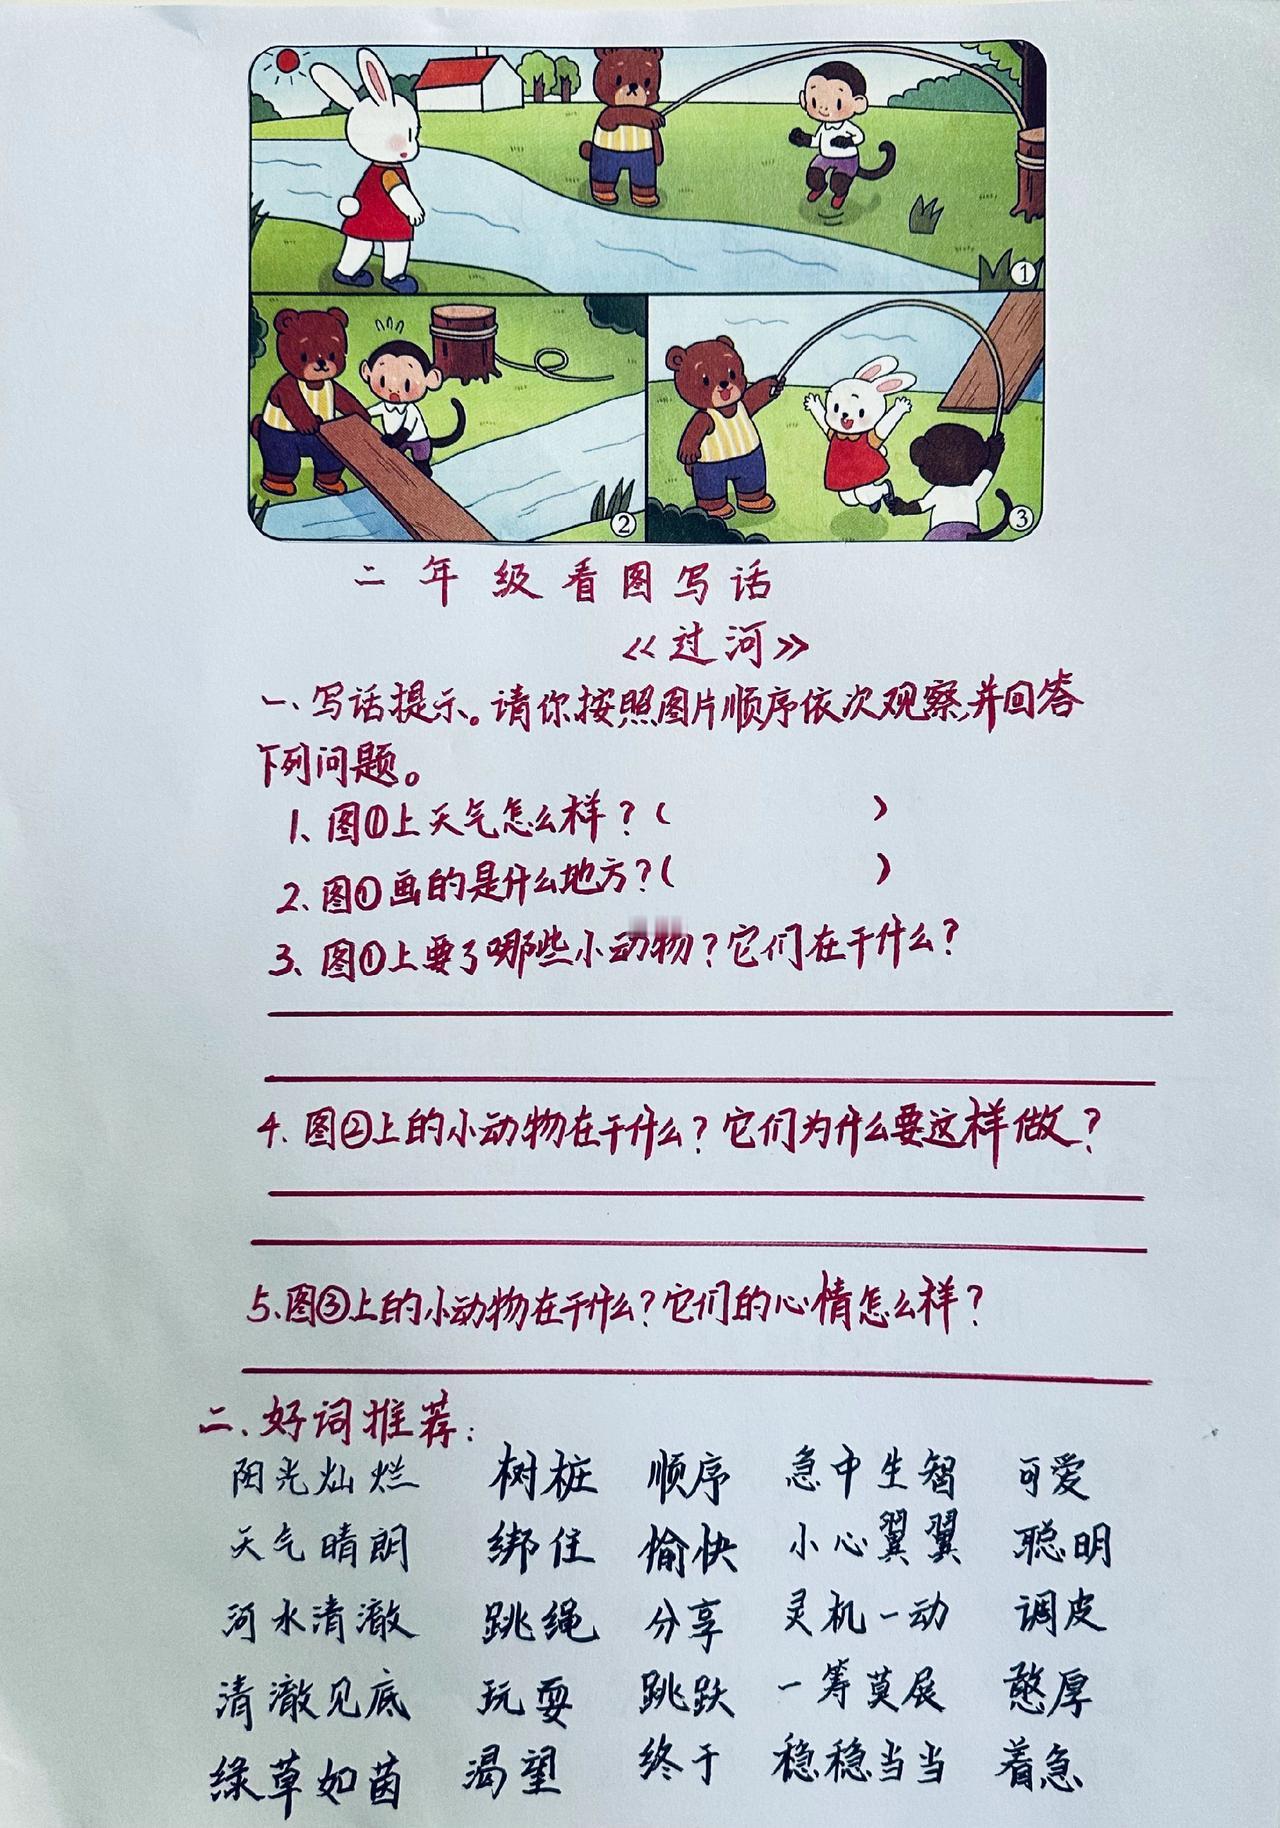 ①
②
③
二年级看图写话
《过河》
一、写话提示。请你按照图片顺序依次观察,并回答
下列问题。
1、图①上天气怎么样?( )
2、图①画的是什么地方?( )
3、图①上要了哪些小动物?它们在干什么?
4、图②上的小动物在干什么?它们为什么要这样做?
5、图③上的小动物在干什么?它们的心情怎么样?
二、好词推荐:
阳光灿烂 树桩 顺序 急中生智 可爱
天气晴朗 绑住 愉快 小心翼翼 聪明
河水清澈 跳绳 分享 灵机一动 调皮
清澈见底 玩耍 跳跃 一筹莫展 憨厚
绿草如茵 渴望 终于 稳稳当当 着急